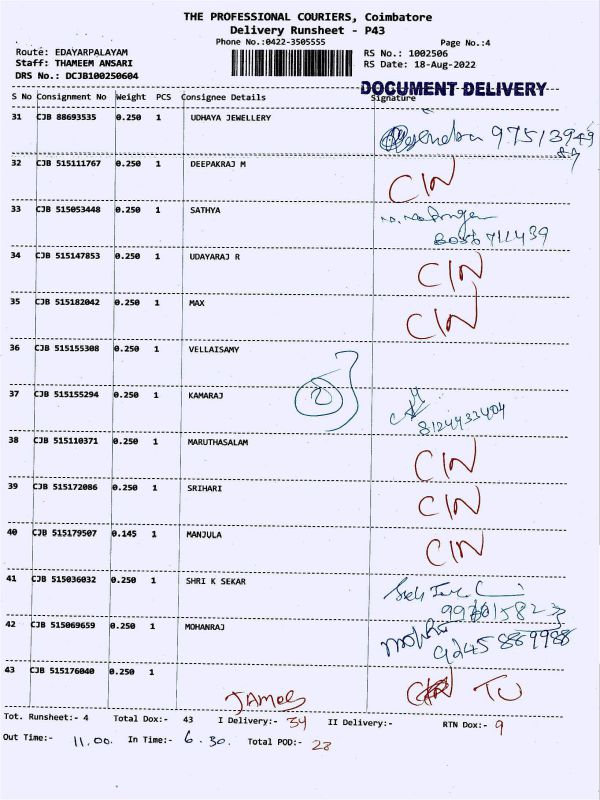 THE PROFESSIONAL COURIERS, Coimbatore
Delivery Runsheet - P43
Phone No.:0422-3505555
Page No.:4
Route: EDAYARPALAYAM
RS No.: 1002506
Staff: THAMEEM ANSARI
RS Date: 18-Aug-2022
DRS No.: DCJB100250604
DOCUMENT DELIVERY
S No Consignment No Weight PCS Consignee Details Signature
31 CJB 88693535 0.250 1 UDHAYA JEWELLERY
32 CJB 515111767 0.250 1 DEEPAKRAJ M CIN
33 CJB 515053448 0.250 1 SATHYA
34 CJB 515147853 0.250 1 UDAYARAJ R CIN
35 CJB 515182042 0.250 1 MAX CIN
36 CJB 515155308 0.250 1 VELLAISAMY
37 CJB 515155294 0.250 1 KAMARAJ 8124433404
38 CJB 515110371 0.250 1 MARUTHASALAM CIN
39 CJB 515172086 0.250 1 SRIHARI CIN
40 CJB 515179507 0.145 1 MANJULA CIN
41 CJB 515036032 0.250 1 SHRI K SEKAR
42 CJB 515069659 0.250 1 MOHANRAJ
43 CJB 515176040 0.250 1
JAMES
Tot. Runsheet:- 4 Total Dox:- 43 I Delivery:- 34 II Delivery:- RTN Dox:- 9
Out Time:- 11.00. In Time:- 6.30. Total POD:- 23